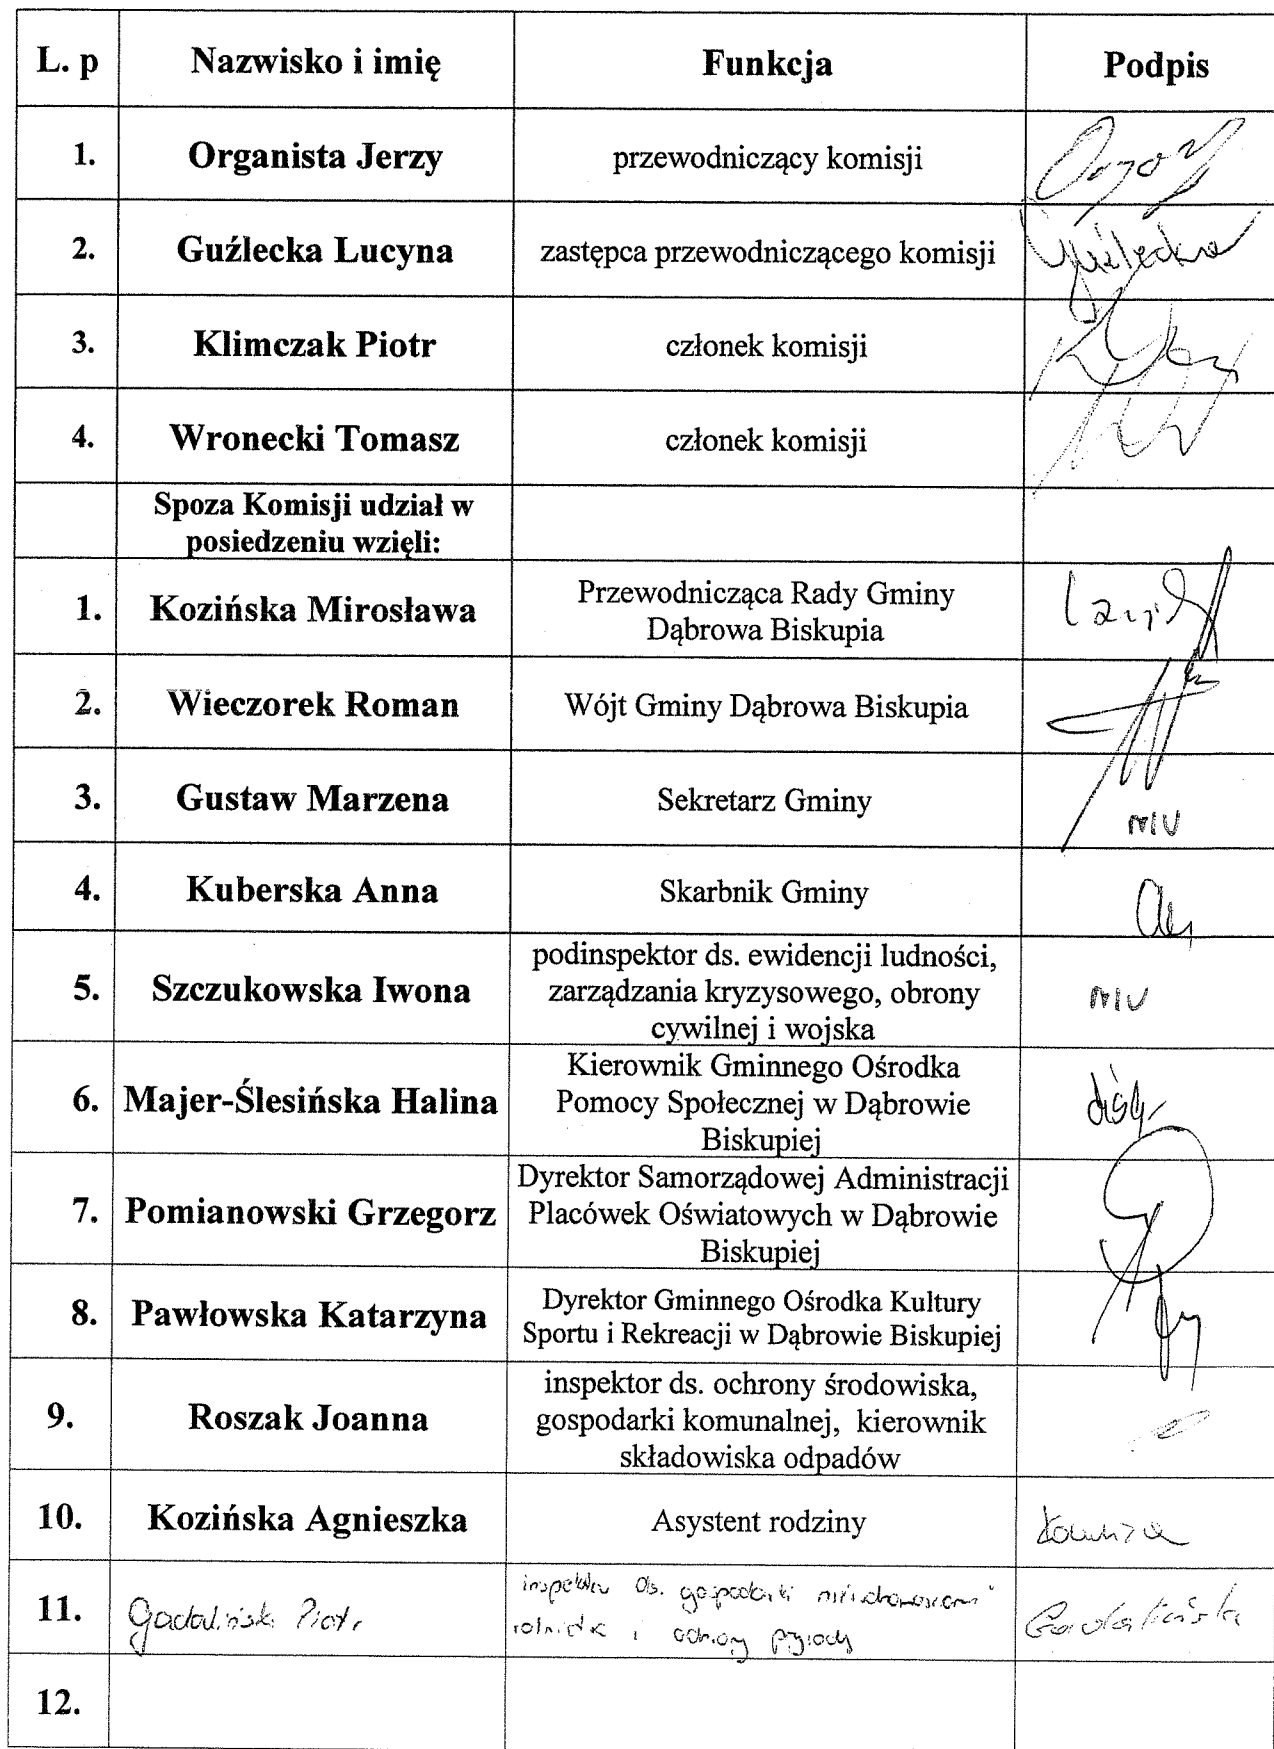 L. p Nazwisko i imię Funkcja Podpis
1. Organista Jerzy przewodniczący komisji
2. Guźlecka Lucyna zastępca przewodniczącego komisji Guźlecka
3. Klimczak Piotr członek komisji
4. Wronecki Tomasz członek komisji
Spoza Komisji udział w
posiedzeniu wzięli:
1. Kozińska Mirosława Przewodnicząca Rady Gminy
Dąbrowa Biskupia
2. Wieczorek Roman Wójt Gminy Dąbrowa Biskupia
3. Gustaw Marzena Sekretarz Gminy
4. Kuberska Anna Skarbnik Gminy
5. Szczukowska Iwona podinspektor ds. ewidencji ludności,
zarządzania kryzysowego, obrony
cywilnej i wojska
6. Majer-Ślesińska Halina Kierownik Gminnego Ośrodka
Pomocy Społecznej w Dąbrowie
Biskupiej
7. Pomianowski Grzegorz Dyrektor Samorządowej Administracji
Placówek Oświatowych w Dąbrowie
Biskupiej
8. Pawłowska Katarzyna Dyrektor Gminnego Ośrodka Kultury
Sportu i Rekreacji w Dąbrowie Biskupiej
9. Roszak Joanna inspektor ds. ochrony środowiska,
gospodarki komunalnej, kierownik
składowiska odpadów
10. Kozińska Agnieszka Asystent rodziny
11. Gadaliński Piotr inspektor ds. gospodarki nieruchomościami
i ochrony przyrody Gadaliński
12.